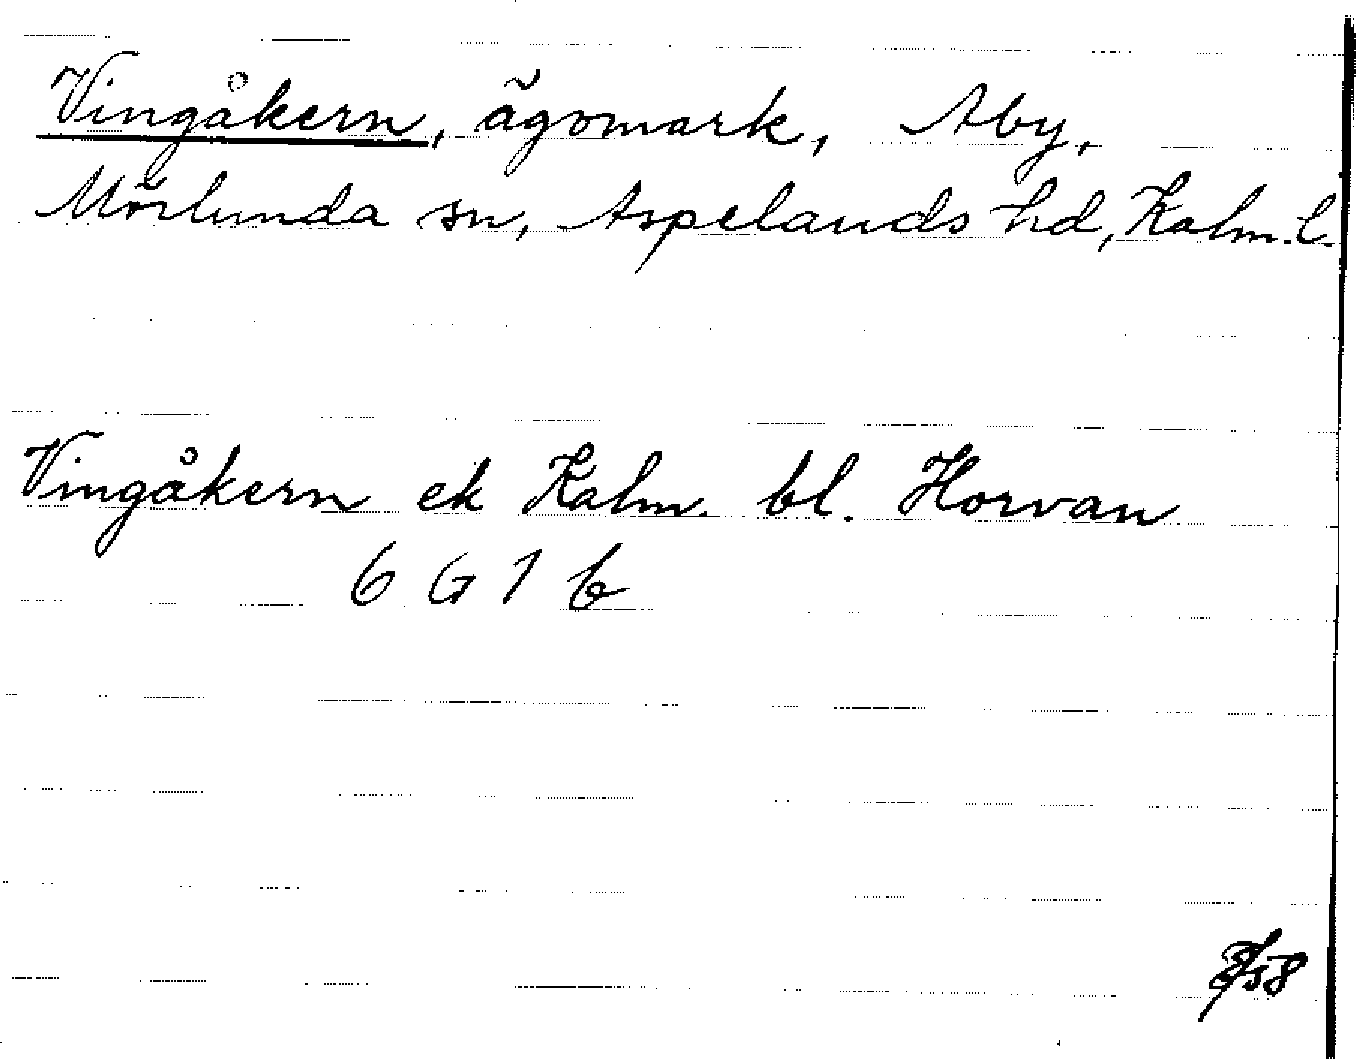 Vingåkern, ägomark, Aby,
Mörlunda sn, Aspelands hd, Kalm. l.
Vingåkern ek Kalm. bl. Horvan
6 G 1 b